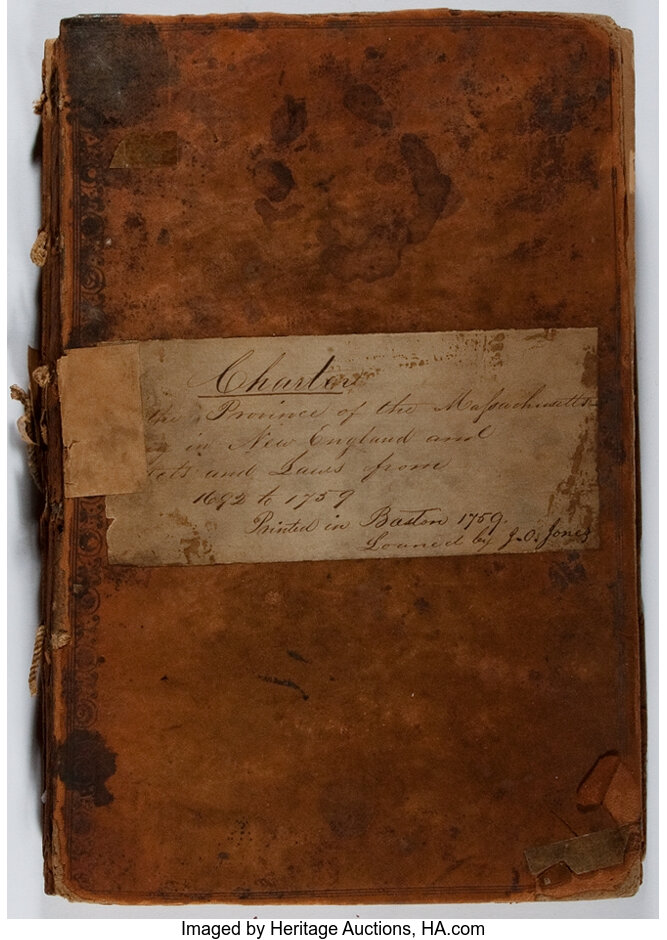 Charter
the Province of the Massachusetts
in New England and
Acts and Laws from
1692 to 1759
Printed in Boston 1759.
Loaned by J. O. Jones
Imaged by Heritage Auctions, HA.com